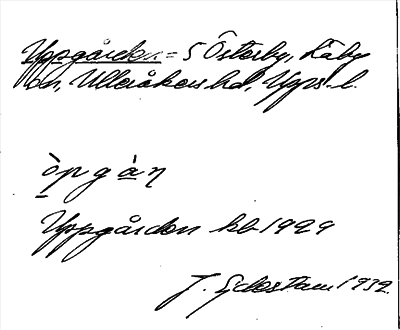 Uppgården = 5 Österby, Läby
sn, Ulleråkers hd, Upps. l.
òpgàn
Uppgården kb 1929
J. Edestam 1932.